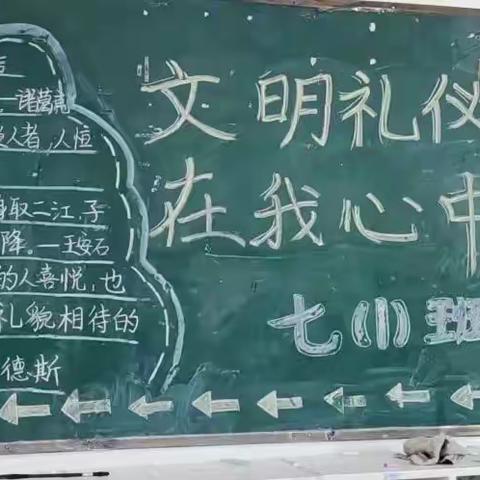 言
—诸葛亮
人者,人恒
取二江,子
降。—王安石
的人喜悦,也
礼貌相待的
德斯
文明礼仪
在我心中
七(1)班